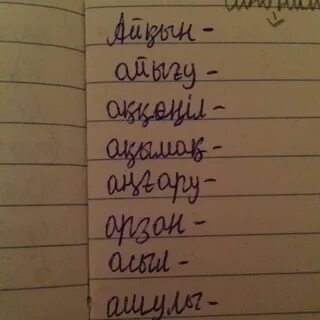 Айқын -
айығу -
ақкөңіл -
ақымақ -
аңғару -
арзан -
асыл -
ашулы -